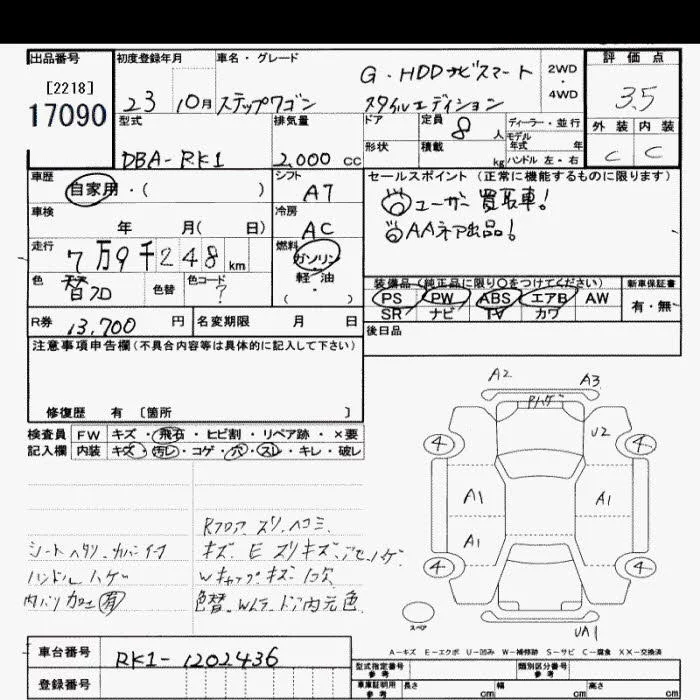 出品番号
[2218]
17090
初度登録年月
23 10月
車名・グレード
ステップワゴン
G・HDDナビスマート
スタイルエディション
2WD
・
4WD
評価点
3.5
外装 内装
C C
型式
DBA-RK1
排気量
2,000 cc
ドア
定員
8人
形状
積載
kg
ディーラー・並行
モデル
年式 年
ハンドル 左・右
車歴
自家用・( )
シフト
A7
車検
年 月( 日)
冷房
AC
走行
7万9千248 km
燃料
ガソリン
軽・油
・
( )
色
替
色替
色コード
?
R券
13,700 円
名変期限 月 日
セールスポイント (正常に機能するものに限ります)
ユーザー買取車!
AA 出品!
装備品(純正品に限り○をつけてください)
PS PW ABS エアB AW
SR ナビ TV カワ
新車保証書
有・無
後日品
注意事項申告欄(不具合内容等は具体的に記入して下さい)
修復歴 有 〔箇所 〕
検査員 FW キズ・飛石・ヒビ割・リペア跡・×要
記入欄 内装 キズ・汚レ・コゲ・穴・スレ・キレ・破レ
シートヘタリ
ハンドルハゲ
内ハリ 有
Rフロア スリ ヘコミ
キズ E スリキズ
Wキャップキズ
色替 ドア内元色
A2
A3
U2
4
4
A1
A1
A1
4
4
スペア
UA1
A-キズ E-エクボ U-凹み W-補修跡 S-サビ C-腐食 XX-交換済
車台番号
RK1-1202436
登録番号
型式指定番号
参考
類別区分番号
参考
車庫証明用
参考
長さ cm
幅 cm
高さ cm